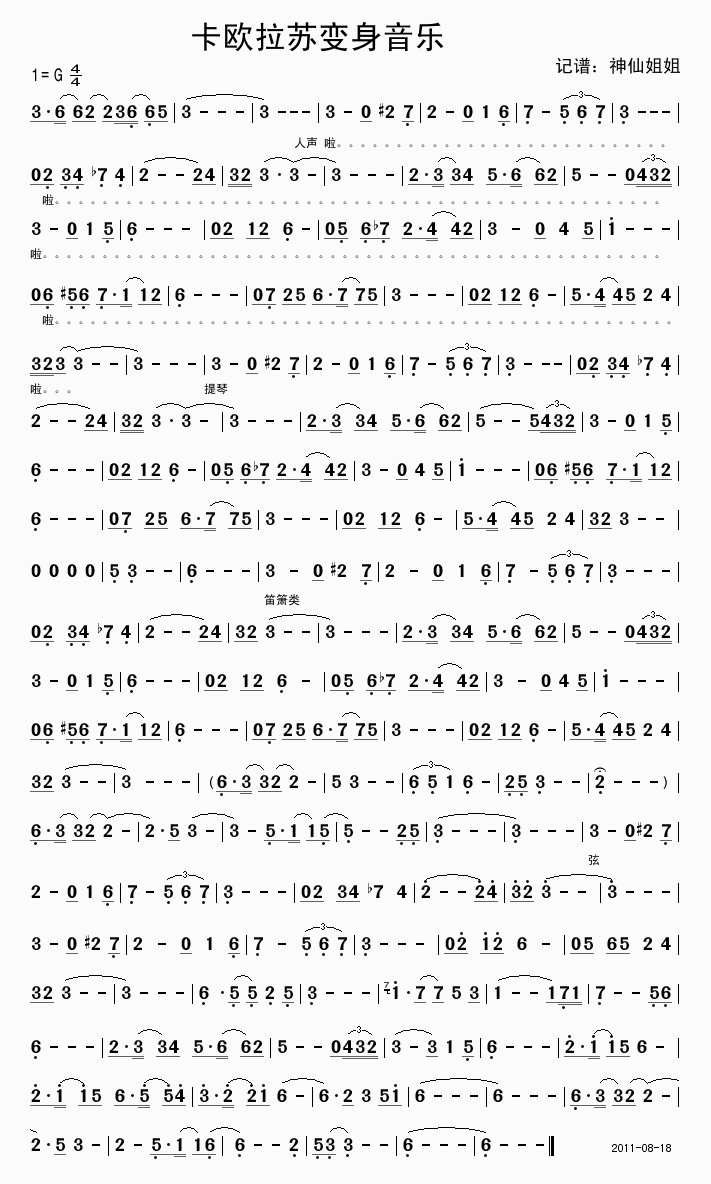 卡欧拉苏变身音乐
1=G 4/4
记谱：神仙姐姐
3·6 62 236 65|3 - - -|3 - - -|3 - 0 #2 7|2 - 0 1 6|7 - 5 6 7|3 - - -
人声 啦。。。。。。。。。。。。。。。。。。。。。。。。。。。。
02 34 ♭7 4|2 - - 24|32 3·3 -|3 - - -|2·3 34 5·6 62|5 - - 0432|
啦。。。。。。。。。。。。。。。。。。。。。。。。。。。。。。。。。。。。。。。。。。。。。。。。。。。
3 - 0 1 5|6 - - -|02 12 6 -|05 6♭7 2·4 42|3 - 0 4 5|1 - - -|
啦。。。。。。。。。。。。。。。。。。。。。。。。。。。。。。。。。。。。。。。。。。。。。。。。。。。。
06 #56 7·1 12|6 - - -|07 25 6·7 75|3 - - -|02 12 6 -|5·4 45 2 4|
啦。。。。。。。。。。。。。。。。。。。。。。。。。。。。。。。。。。。。。。。。。。。。。。。。。。。。
323 3 - -|3 - - -|3 - 0 #2 7|2 - 0 1 6|7 - 5 6 7|3 - - -|02 34 ♭7 4|
啦。。。 提琴
2 - - 24|32 3·3 -|3 - - -|2·3 34 5·6 62|5 - - 5432|3 - 0 1 5|
6 - - -|02 12 6 -|05 6♭7 2·4 42|3 - 0 4 5|1 - - -|06 #56 7·1 12|
6 - - -|07 25 6·7 75|3 - - -|02 12 6 -|5·4 45 2 4|32 3 - -|
0 0 0 0|5 3 - -|6 - - -|3 - 0 #2 7|2 - 0 1 6|7 - 5 6 7|3 - - -|
笛箫类
02 34 ♭7 4|2 - - 24|32 3 - -|3 - - -|2·3 34 5·6 62|5 - - 0432|
3 - 0 1 5|6 - - -|02 12 6 -|05 6♭7 2·4 42|3 - 0 4 5|1 - - -|
06 #56 7·1 12|6 - - -|07 25 6·7 75|3 - - -|02 12 6 -|5·4 45 2 4|
32 3 - -|3 - - -|(6·3 32 2 -|5 3 - -|6 5 1 6 -|25 3 - -|2 - - -)|
6·3 32 2 -|2·5 3 -|3 - 5·1 15|5 - - 25|3 - - -|3 - - -|3 - 0#2 7|
弦
2 - 0 1 6|7 - 5 6 7|3 - - -|02 34 ♭7 4|2 - - 24|32 3 - -|3 - - -|
3 - 0 #2 7|2 - 0 1 6|7 - 5 6 7|3 - - -|02 12 6 -|05 65 2 4|
32 3 - -|3 - - -|6 ·5 5 2 5|3 - - -|7 1·7 7 5 3|1 - - 171|7 - - 56|
6 - - -|2·3 34 5·6 62|5 - - 0432|3 - 3 1 5|6 - - -|2·1 15 6 -|
2·1 15 6·5 54|3·2 21 6 -|6·2 3 51|6 - - -|6 - - -|6·3 32 2 -|
2·5 3 -|2 - 5·1 16|6 - - 2|53 3 - -|6 - - -|6 - - -‖
2011-08-18